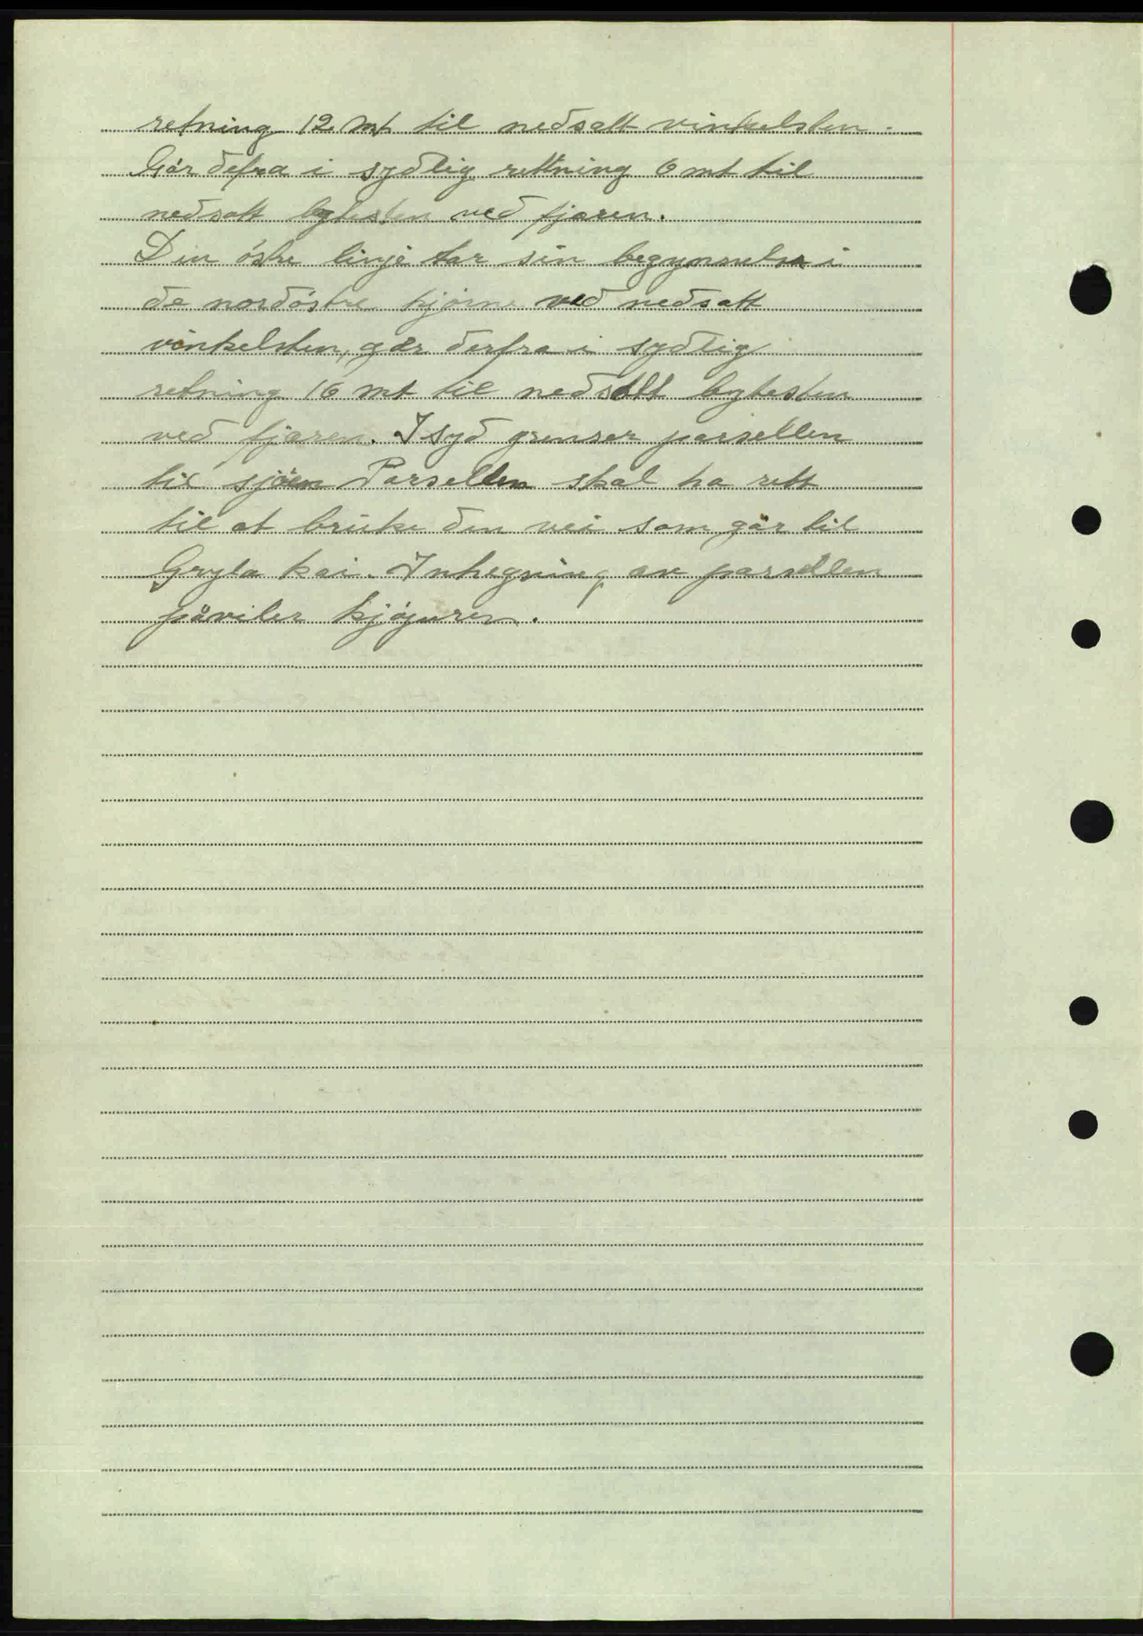 retning 12 mt til nedsatt vinkelsten.
Går defra i sydlig rettning 6 mt til
nedsatt bytesten ved fjæren.
Den östre linje tar sin begynnelse i
de nordöstre hjörne ved nedsatt
vinkelsten, går derfra i sydlig
retning 16 mt til nedsatt bytesten
ved fjæren. I syd grenser parsellen
til sjöen Parsellen skal ha rett
til at bruke den vei som går til
Gryta kai. Inhegning av parsellen
påviler kjöperen.